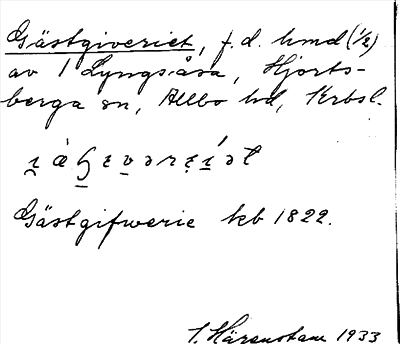 Gästgiveriet, f.d. hmd (1/2)
av 1 Lyngsåsa, Hjorts-
berga sn, Allbo hd, Krbsl.
Gästgifwerie kb 1822.
S. Härenstam 1933